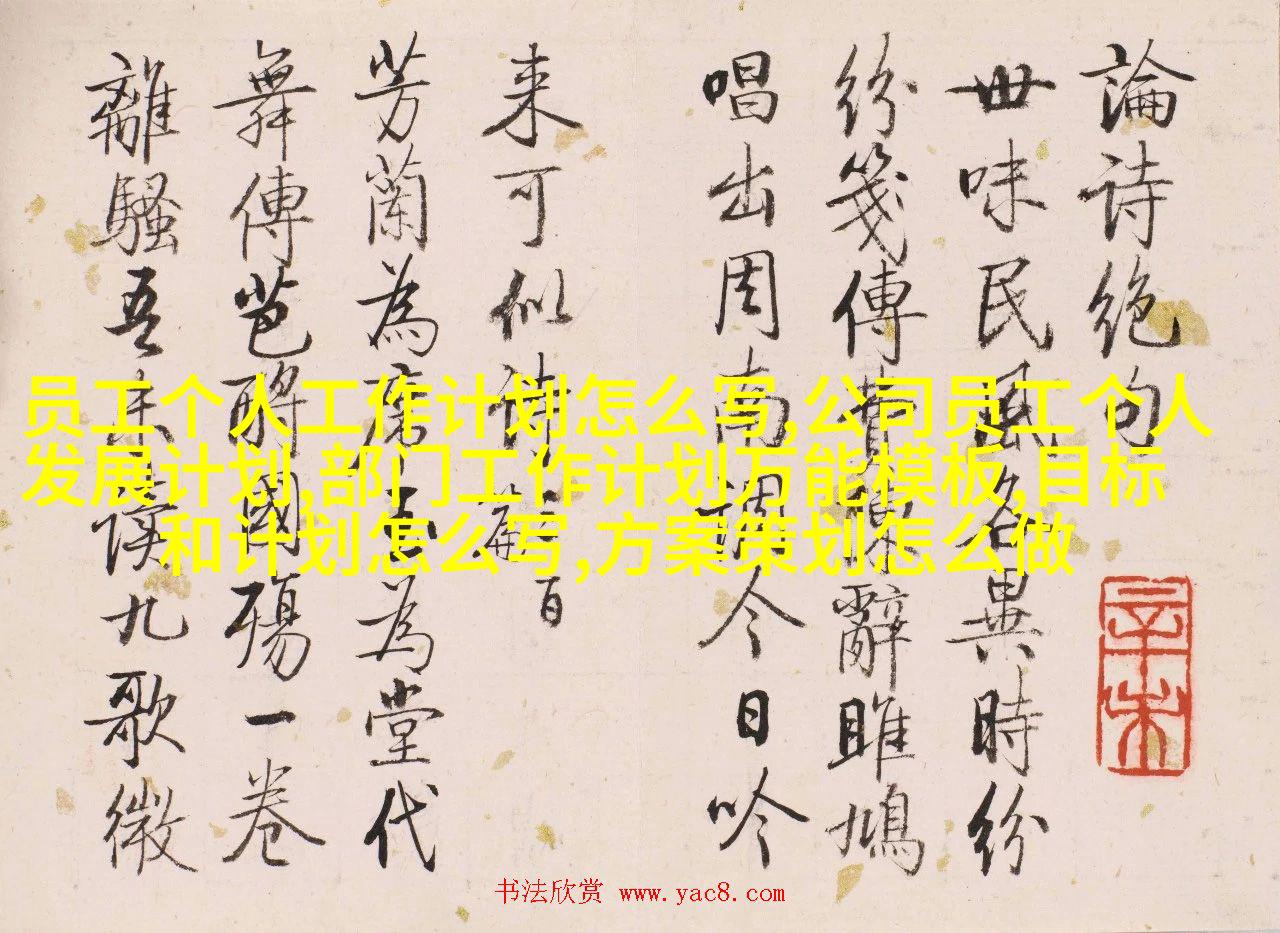 論诗绝句
世味民風名異時紛
紛箋傳費辭雎鳩
唱出周南調今日吟
来可似诗篇百
芳蘭為席玉為堂代
舞傳芭酹國殤一卷
離騷吾未讀九歌微
员工个人工作计划怎么写,公司员工个人
发展计划,部门工作计划万能模板,目标
和计划怎么写,方案策划怎么做
辛未
书法欣赏 www.yac8.com